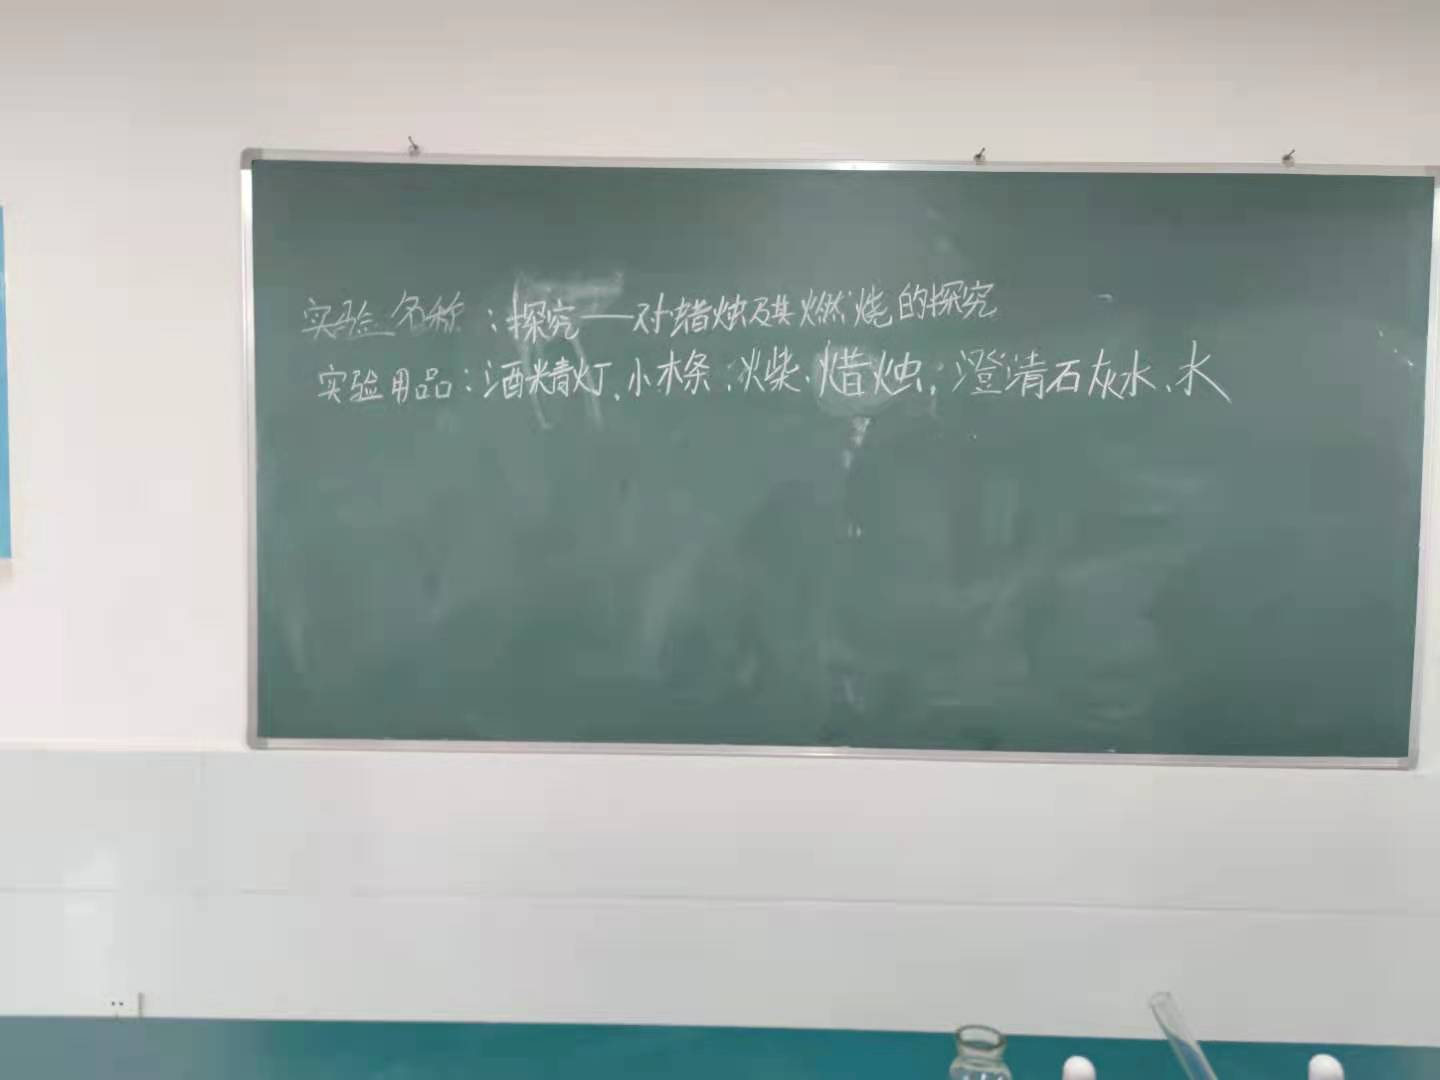 实验名称：探究——对蜡烛及其燃烧的探究
实验用品：酒精灯、小木条、火柴、蜡烛，澄清石灰水、水